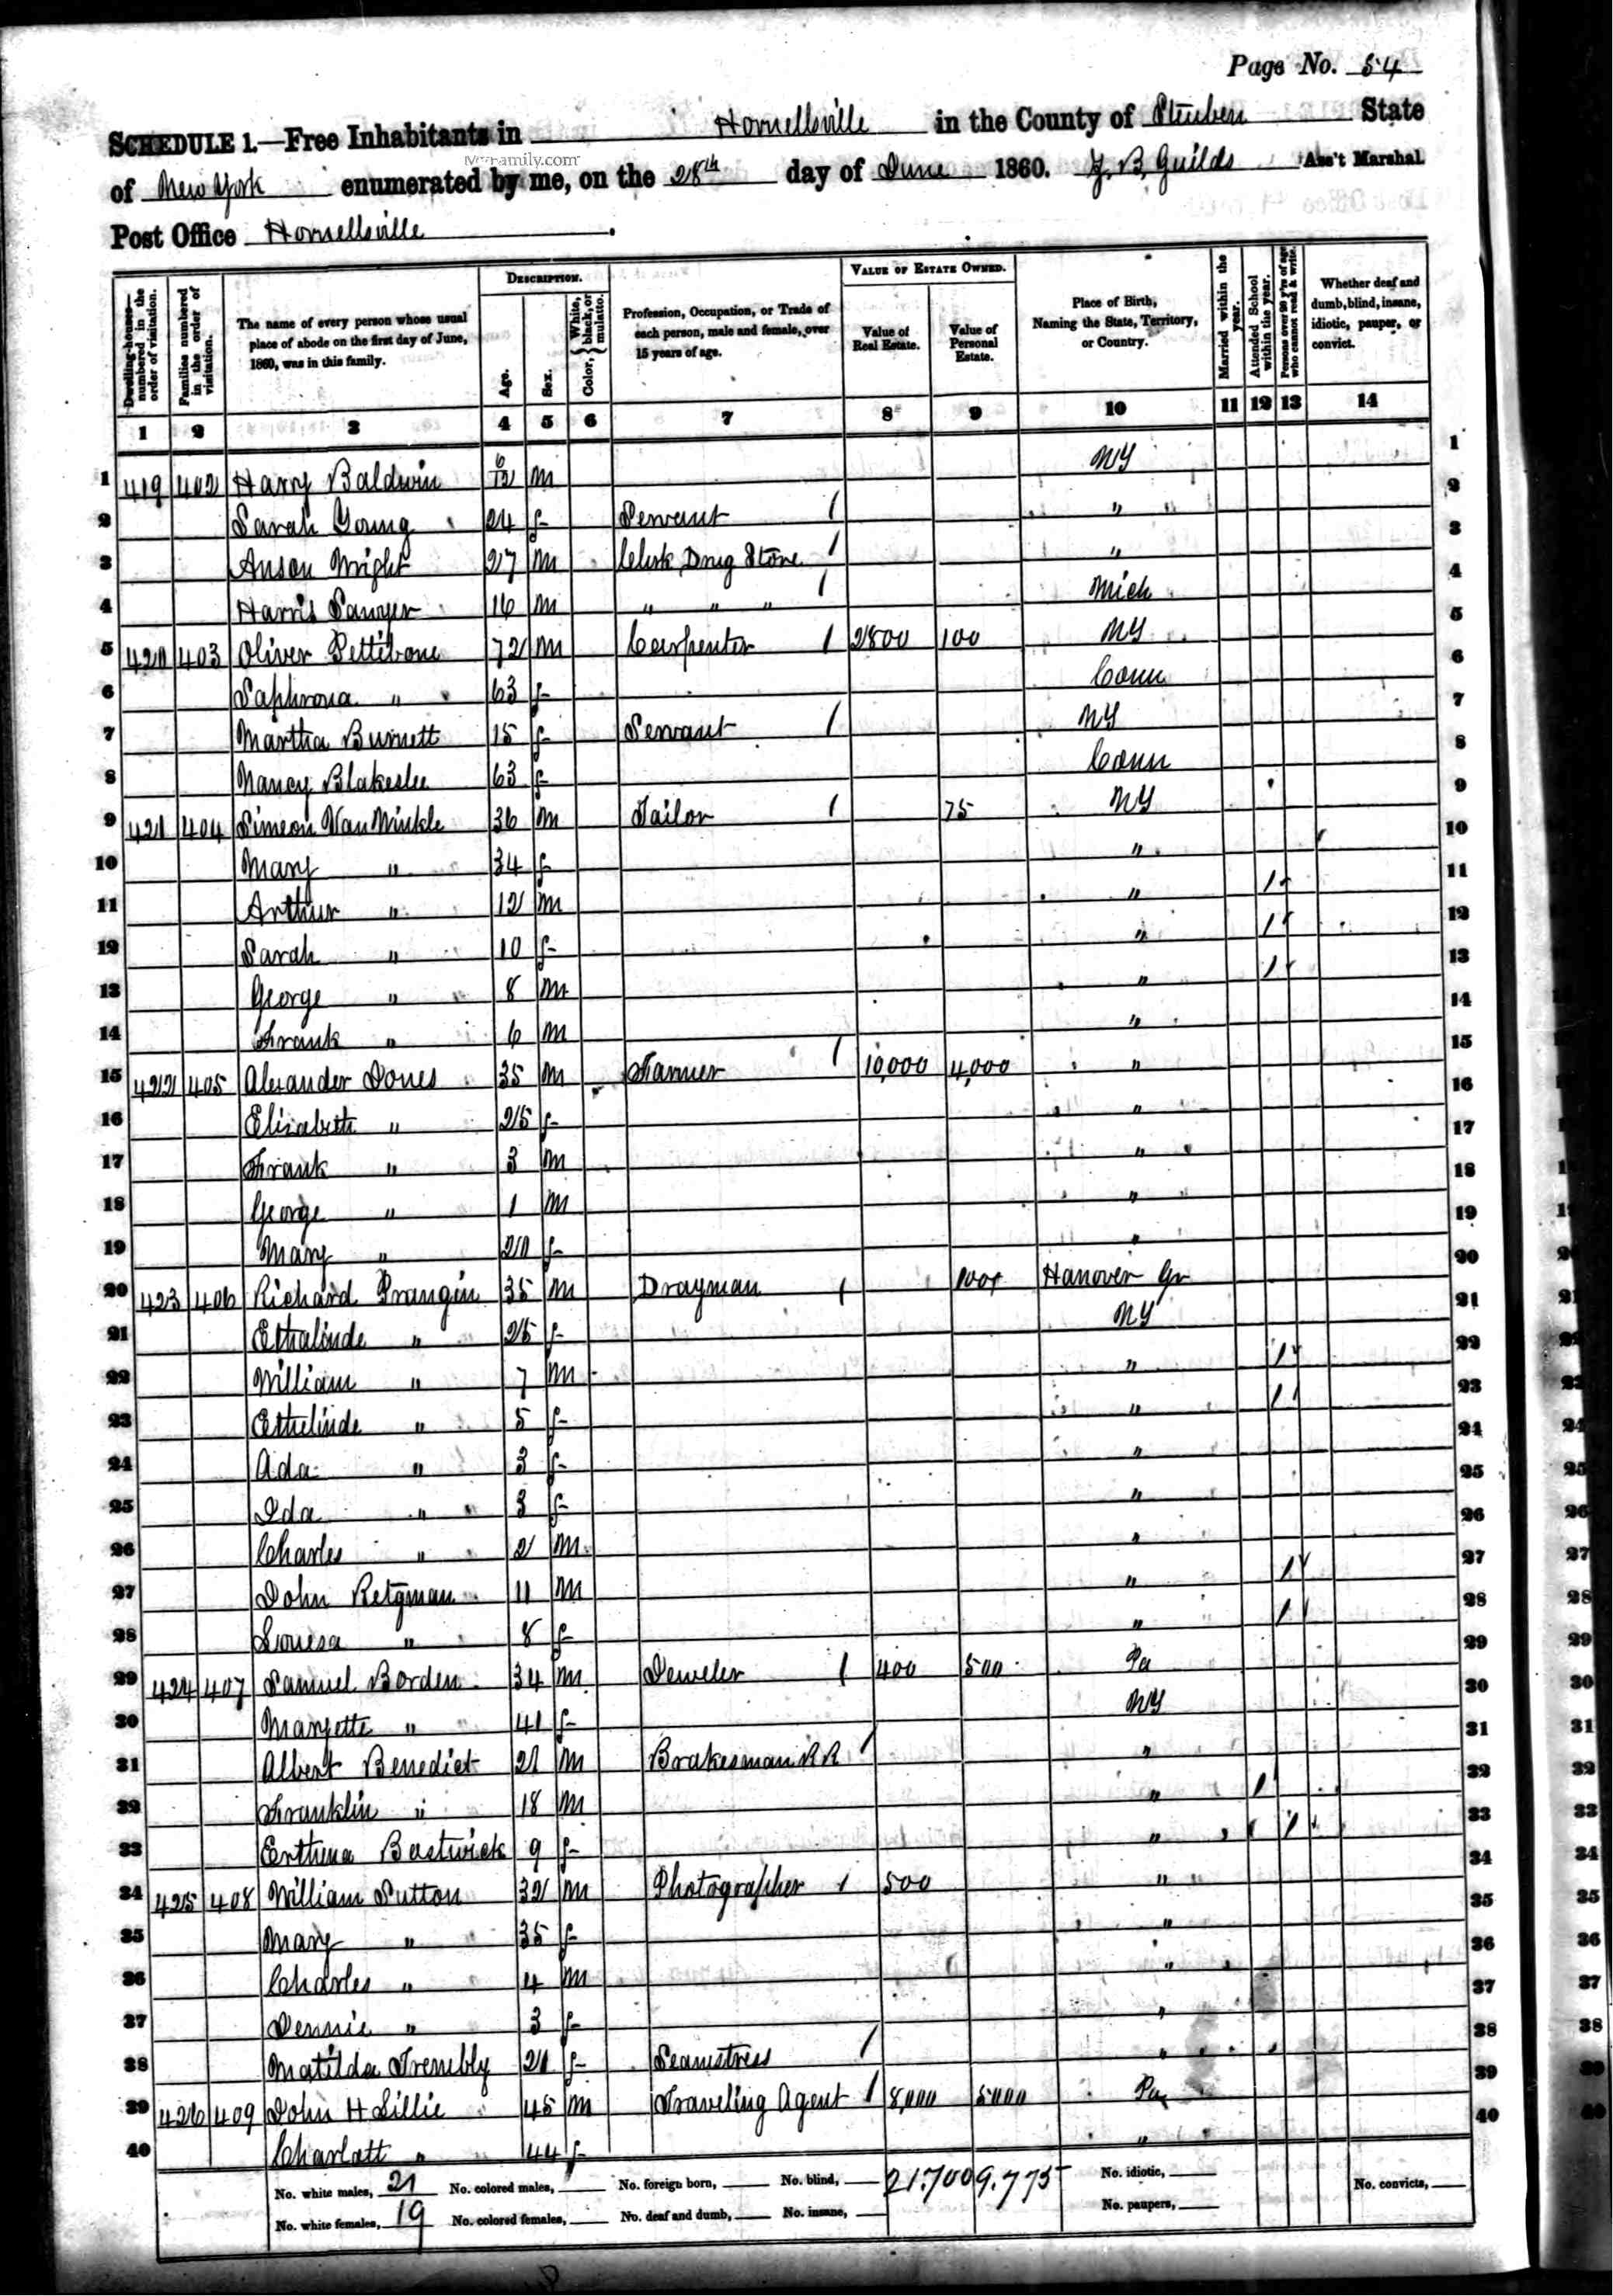 Page No. 54
SCHEDULE 1.—Free Inhabitants in Hornellsville in the County of Steuben State
MyFamily.com
of New York enumerated by me, on the 28th day of June 1860. Y. B. Guilds Ass't Marshal
Post Office Hornellsville
Dwelling-houses— numbered in the order of visitation.
Families numbered in the order of visitation.
The name of every person whose usual place of abode on the first day of June, 1860, was in this family.
DESCRIPTION.
Age.
Sex.
Color, { White, black, or mulatto.
Profession, Occupation, or Trade of each person, male and female, over 15 years of age.
VALUE OF ESTATE OWNED.
Value of Real Estate.
Value of Personal Estate.
Place of Birth, Naming the State, Territory, or Country.
Married within the year.
Attended School within the year.
Persons over 20 y'rs of age who cannot read & write.
Whether deaf and dumb, blind, insane, idiotic, pauper, or convict.
1 2 3 4 5 6 7 8 9 10 11 12 13 14
1 419 402 Harry Baldwin 6/12 m NY 1
2 Sarah Young 24 f Servant / " 2
3 Anson Wright 27 m Clerk Drug Store / " 3
4 Harris Sawyer 16 m " " " / Mich 4
5 420 403 Oliver Pettibone 72 m Carpenter / 2800 100 NY 5
6 Saphrona " 63 f Conn 6
7 Martha Burnett 15 f Servant / NY 7
8 Nancy Blakeslee 63 f Conn 8
9 421 404 Simeon Van Winkle 36 m Tailor / 75 NY 9
10 Mary " 34 f " 10
11 Arthur " 12 m " / 11
12 Sarah " 10 f " / 12
13 George " 8 m " / 13
14 Frank " 6 m " 14
15 422 405 Alexander Jones 35 m Farmer / 10,000 4,000 " 15
16 Elizabeth " 25 f " 16
17 Frank " 3 m " 17
18 George " 1 m " 18
19 Mary " 20 f " 19
20 423 406 Richard Prangin 35 m Drayman / 100 Hanover Gr 20
21 Ethalinde " 25 f NY 21
22 William " 7 m " / 22
23 Ethelinde " 5 f " / 23
24 Ada " 3 f " 24
25 Ida " 3 f " 25
26 Charles " 2 m " 26
27 John Retgman 11 m " / 27
28 Louesa " 8 f " / 28
29 424 407 Samuel Borden 34 m Jeweler / 400 500 Pa 29
30 Maryette " 41 f NY 30
31 Albert Benedict 21 m Brakesman RR / " 31
32 Franklin " 18 m " / 32
33 Erthena Bostwick 9 f " / 33
34 425 408 William Sutton 32 m Photographer / 500 " 34
35 Mary " 35 f " 35
36 Charles " 4 m " 36
37 Jennie " 3 f " 37
38 Matilda Trembly 21 f Seamstress / " 38
39 426 409 John H Lillie 45 m Traveling Agent / 8,000 5000 Pa 39
40 Charlott " 44 f " 40
No. white males, 21 No. colored males, No. foreign born, No. blind, 21.700 9.775 No. idiotic, No. convicts,
No. white females, 19 No. colored females, No. deaf and dumb, No. insane, No. paupers,